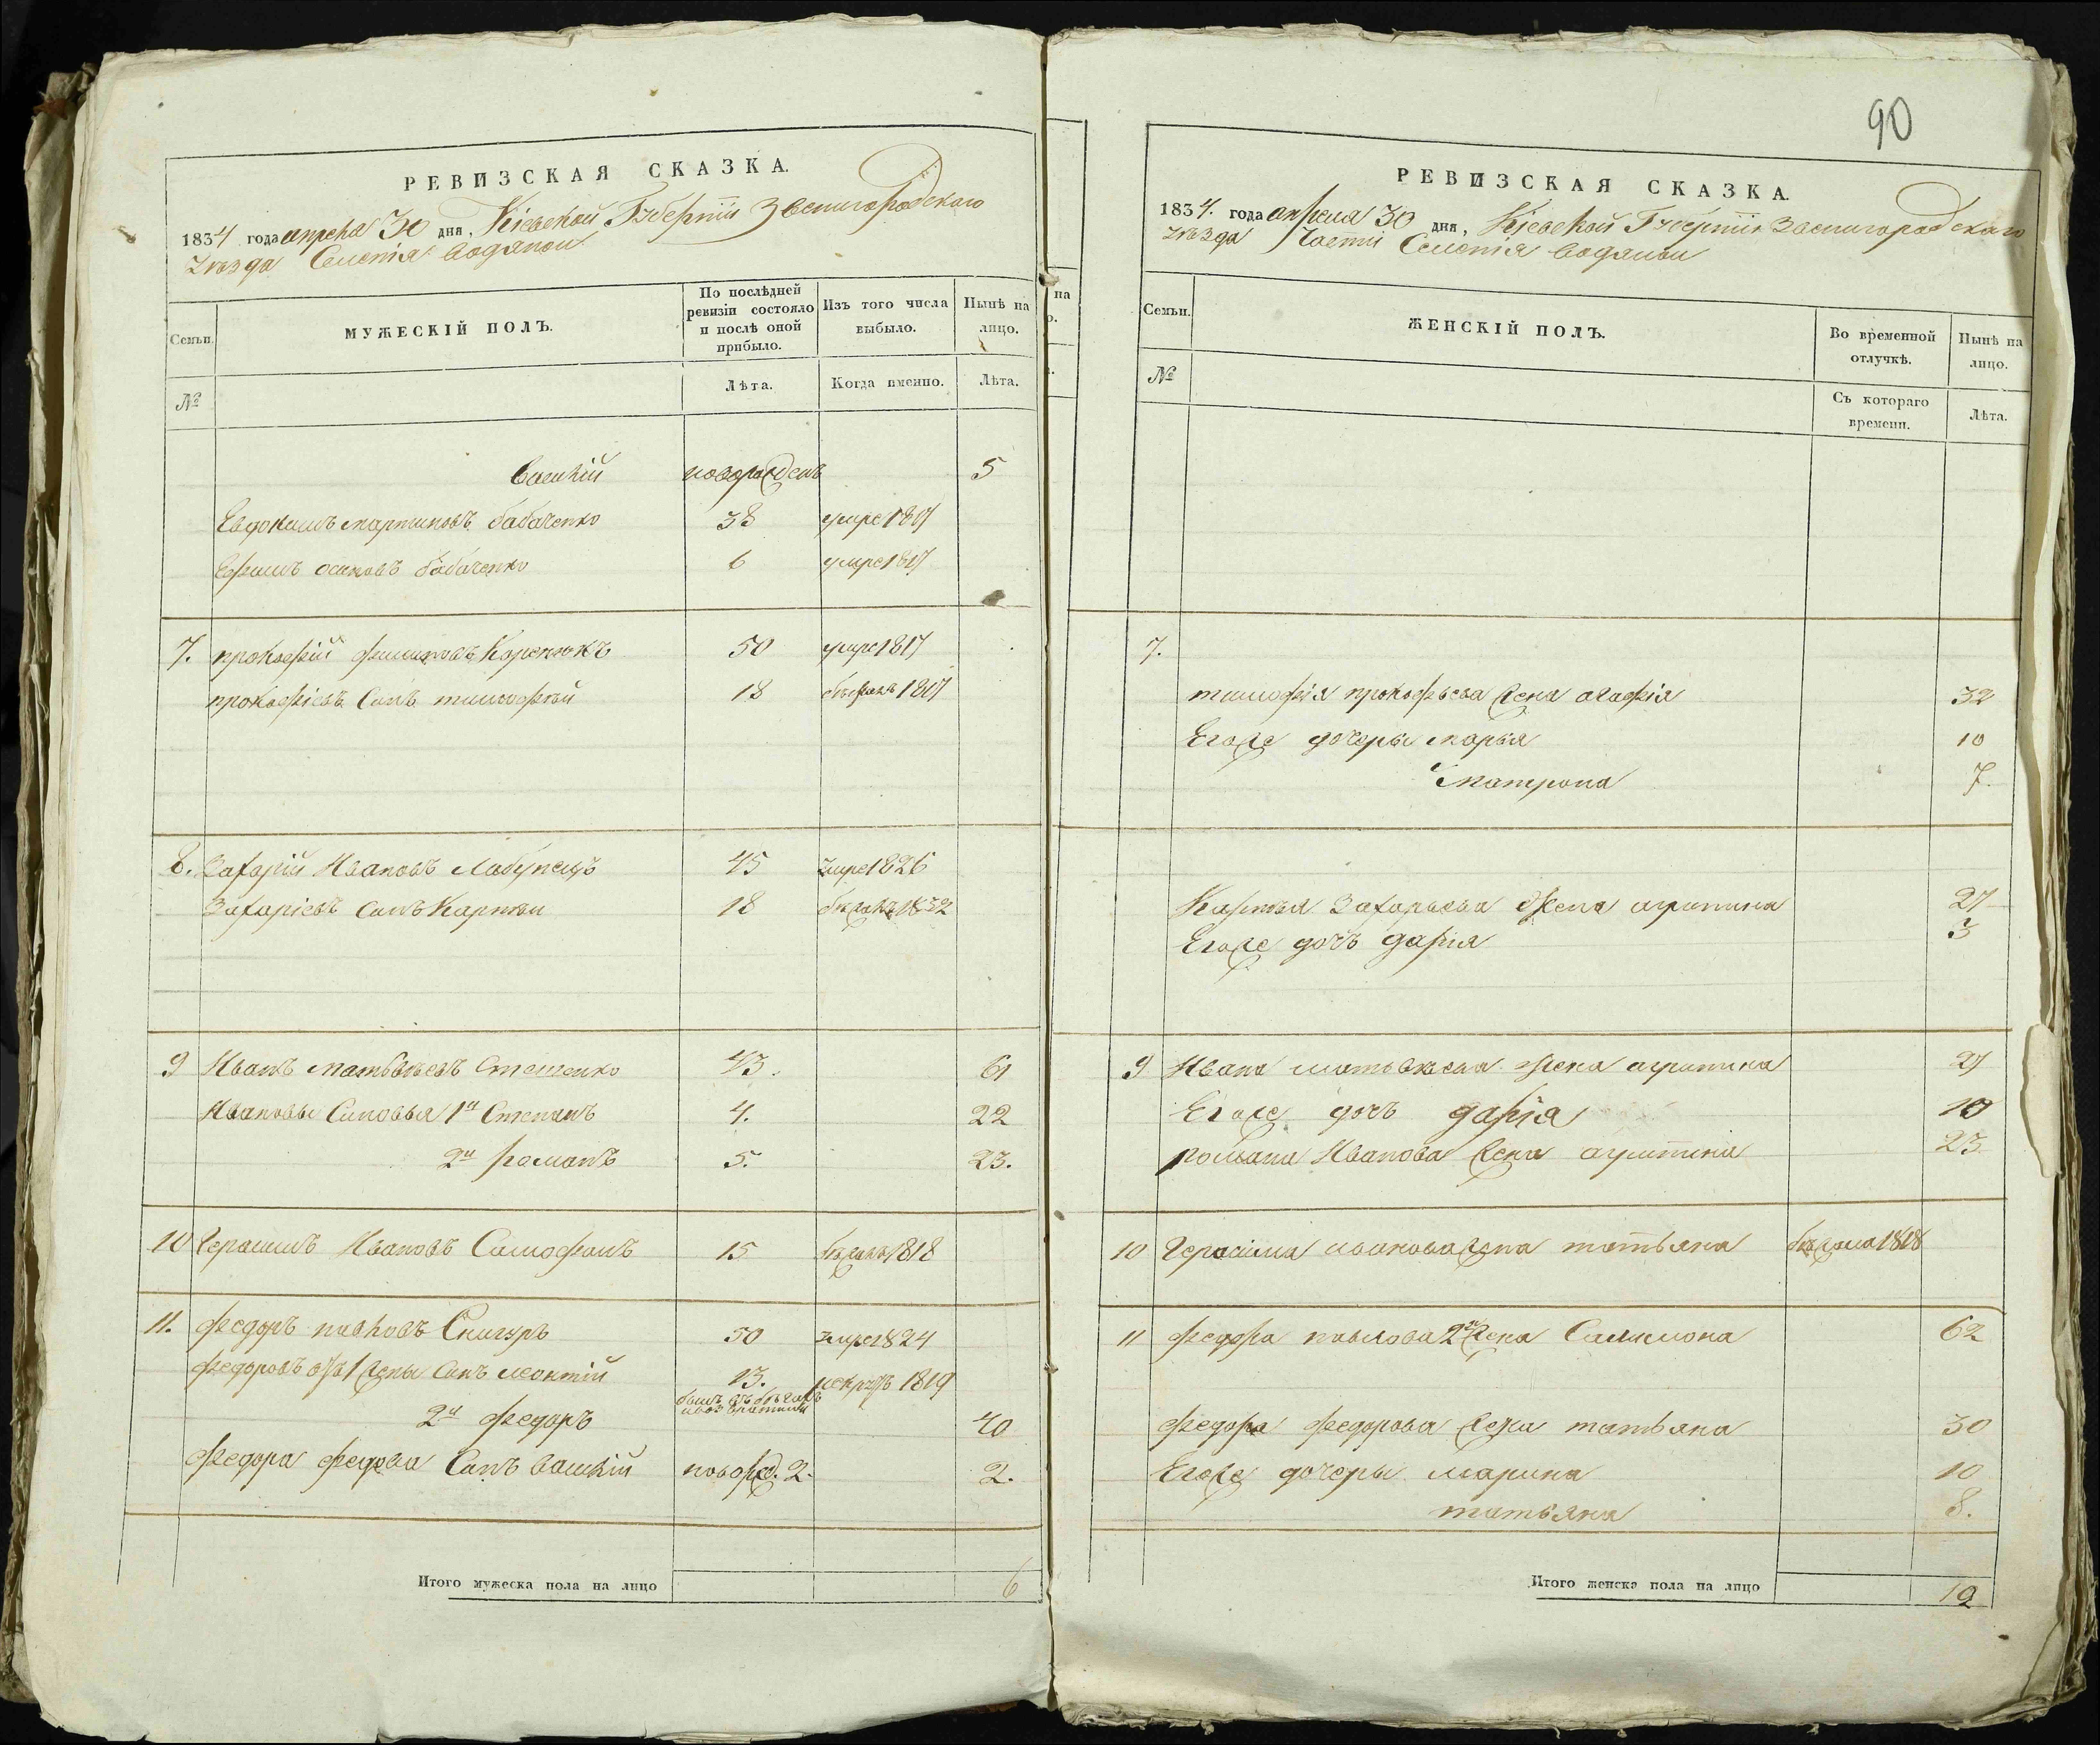 РЕВИЗСКАЯ СКАЗКА.
1834 года апреля 30 дня, Кіевской Губерніи Звенигородского
уѣзда Селенія водяной
Семьи.
МУЖЕСКІЙ ПОЛЪ.
По послѣдней ревизіи состояло и послѣ оной прибыло.
Изъ того числа выбыло.
Нынѣ на лицо.
№
Лѣта.
Когда именно.
Лѣта.
Василій новорожденъ 5
Евдокимъ мартиновъ бабаченко 38 умре 1817
Ефимъ осиповъ бабаченко 6 умре 1817
7. прокофій филиповъ Коренюкъ 50 умре 1817
прокофіевъ Сынъ тимофѣй 18 бѣжалъ 1817
8. Захарій Ивановъ Лабунецъ 45 умре 1826
Захаріевъ Сынъ Карпѣй 18 бѣжалъ 1832
9 Иванъ матвѣевъ Стешенко 43. 61
Ивановы Синовья 1й Степанъ 4. 22
2й романъ 5. 23.
10 Герасимъ Ивановъ Самофалъ 15 бѣжалъ 1818
11. Федоръ павловъ Снигуръ 50 умре 1824
Федоровъ отъ 1 жены Синъ леонтій 13. рекрутъ 1819
былъ въ бѣгахъ
и возвратился
2й Федоръ 40
Федора федорова Синъ василій новорож. 2. 2.
Итого мужеска пола на лицо 6
90
РЕВИЗСКАЯ СКАЗКА.
1834. года апреля 30 дня, Кіевской Губерніи Звенигородского
уѣзда Части Селенія водяной
Семьи.
ЖЕНСКІЙ ПОЛЪ.
Во временной отлучкѣ.
Нынѣ на лицо.
№
Съ котораго времени.
Лѣта.
7.
тимофія прокофьева жена агафія 32
Егоже дочеры марья 10
Матрона 7.
Карпѣя Захарьева жена агрипина 27
Егоже дочъ дарія 3
9 Ивана матвѣева жена агрипина 27
Егоже дочъ дарія 10
романа Иванова жена агрипина 23
10 Герасима иванова жена татьяна бѣжала 1818
11 Федора павлова 2я жена Саломона 62
Федора федорова жена татьяна 30
Егоже дочеры марина 10
татьяна 8.
Итого женска пола на лицо 12